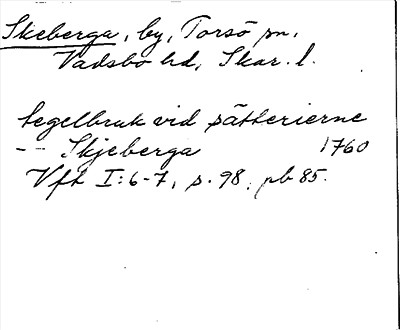 Skeberga, by, Torsö sn,
Vadsbo hd, Skar. l.
tegelbruk vid sätterierne
-- Skjeberga 1760
Vft I:6-7, s. 98, pb 85.